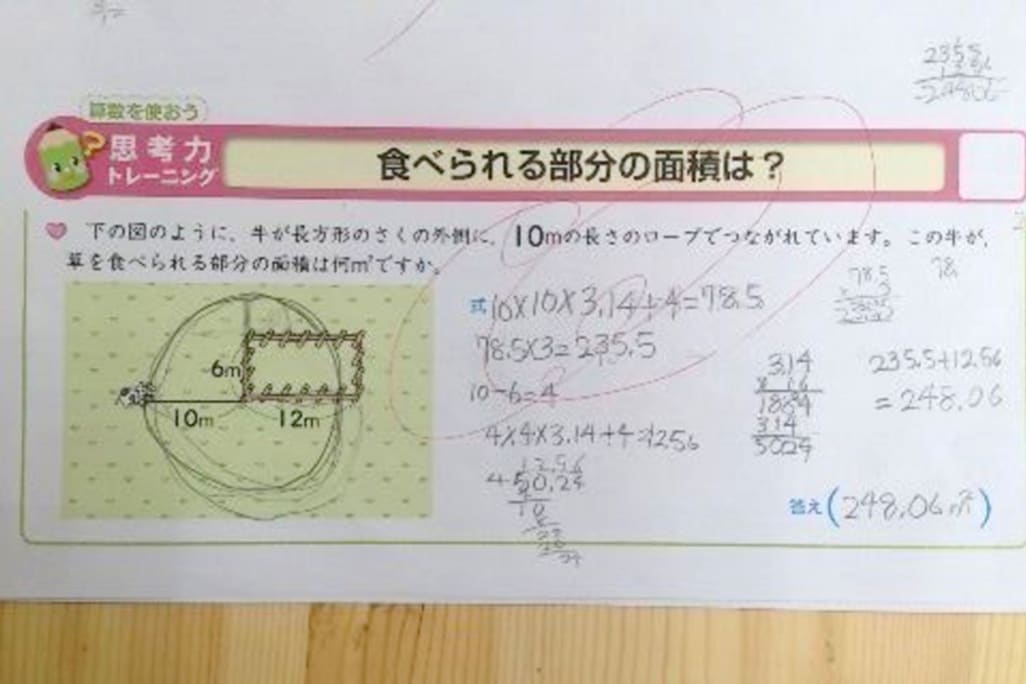 2355
248.06
算数を使おう
思考力
トレーニング
食べられる部分の面積は？
下の図のように、牛が長方形のさくの外側に、10mの長さのロープでつながれています。この牛が、
草を食べられる部分の面積は何m²ですか。
6m
10m
12m
式 10×10×3.14÷4=78.5
78.5×3=235.5
10-6=4
4×4×3.14÷4=12.56
12.56
4 50.24
78.5
78
3.14
× 16
1884
314
5024
235.5+12.56
=248.06
答え(248.06㎡)